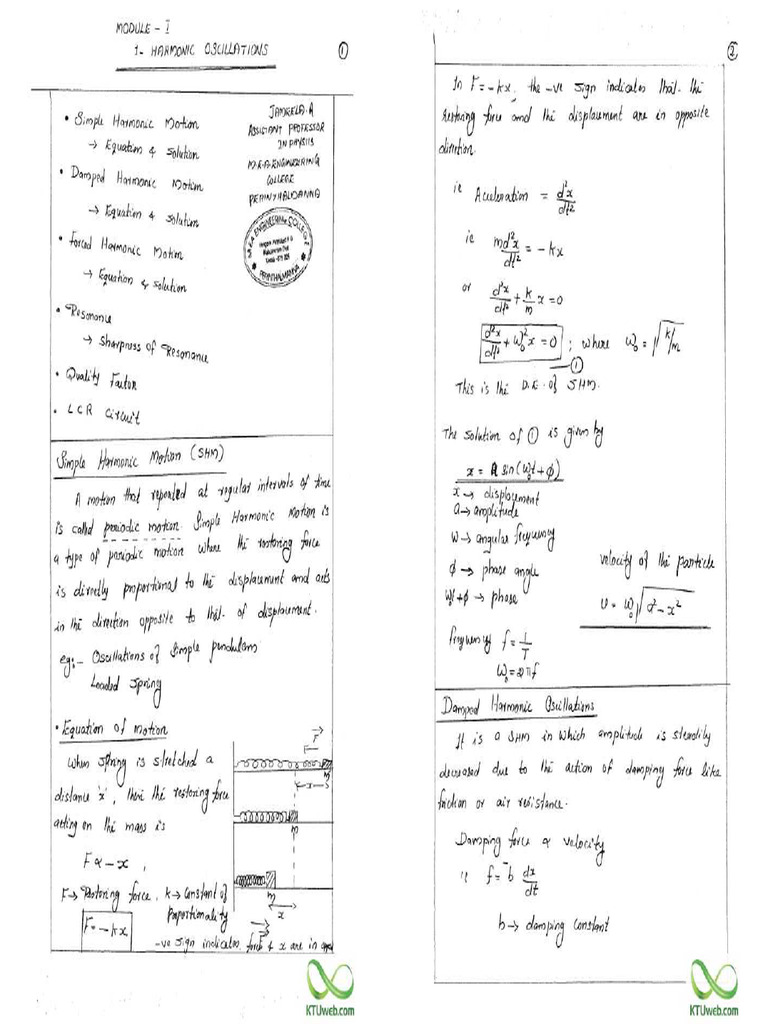 MODULE - I
1- HARMONIC OSCILLATIONS
①
• Simple Harmonic Motion
→ Equation & Solution
• Damped Harmonic Motion
→ Equation & Solution
• Forced Harmonic Motion
→ Equation & Solution
• Resonance
→ Sharpness of Resonance
• Quality Factor
• LCR Circuit
JAMEELA.A
ASSISTANT PROFESSOR
IN PHYSICS
M.E.A-ENGINEERING
COLLEGE
PERINTHALMANNA
M.E.A ENGINEERING COLLEGE
PERINTHALMANNA
Simple Harmonic Motion (SHM)
A motion that repeated at regular intervals of time
is called periodic motion. Simple Harmonic Motion is
a type of periodic motion where the restoring force
is directly proportional to the displacement and acts
in the direction opposite to that of displacement.
eg:- Oscillations of Simple pendulam
Loaded Spring
• Equation of motion
When spring is stretched a
distance 'x', then the restoring force
acting on the mass is
F ∝ -x ,
F → Restoring force, k → Constant of
proportionality
F = -kx
-ve sign indicates force & x are in
F
x
m
m
m
x
KTUweb.com
②
In F = -kx, the -ve sign indicates that the
restoring force and the displacement are in opposite
direction.
ie Acceleration = d²x/dt²
ie md²x/dt² = -kx
or d²x/dt² + k/m x = 0
d²x/dt² + ω₀²x = 0 ; where ω₀ = √k/m
①
This is the D.E. of SHM.
The solution of ① is given by
x = a sin(ω₀t + φ)
x → displacement
a → amplitude
ω → angular frequency
φ → phase angle
ω₀t + φ → phase
velocity of the particle
v = ω₀√a² - x²
frequency f = 1/T
ω₀ = 2πf
Damped Harmonic Oscillations
It is a SHM in which amplitude is steadily
decreased due to the action of damping force like
friction or air resistance.
Damping force ∝ velocity
ie f = -b dx/dt
b → damping constant
KTUweb.com